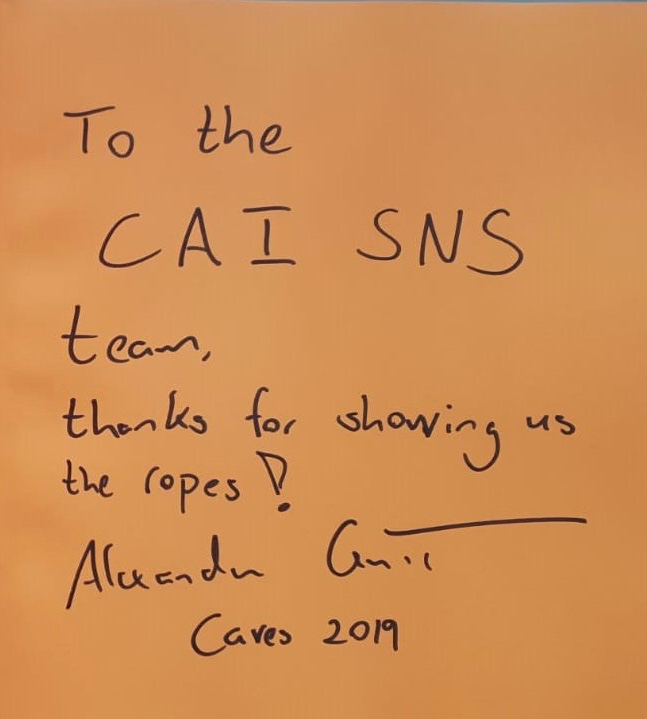 To the
CAI SNS
team,
thanks for showing us
the ropes!
Alexander
Caves 2019